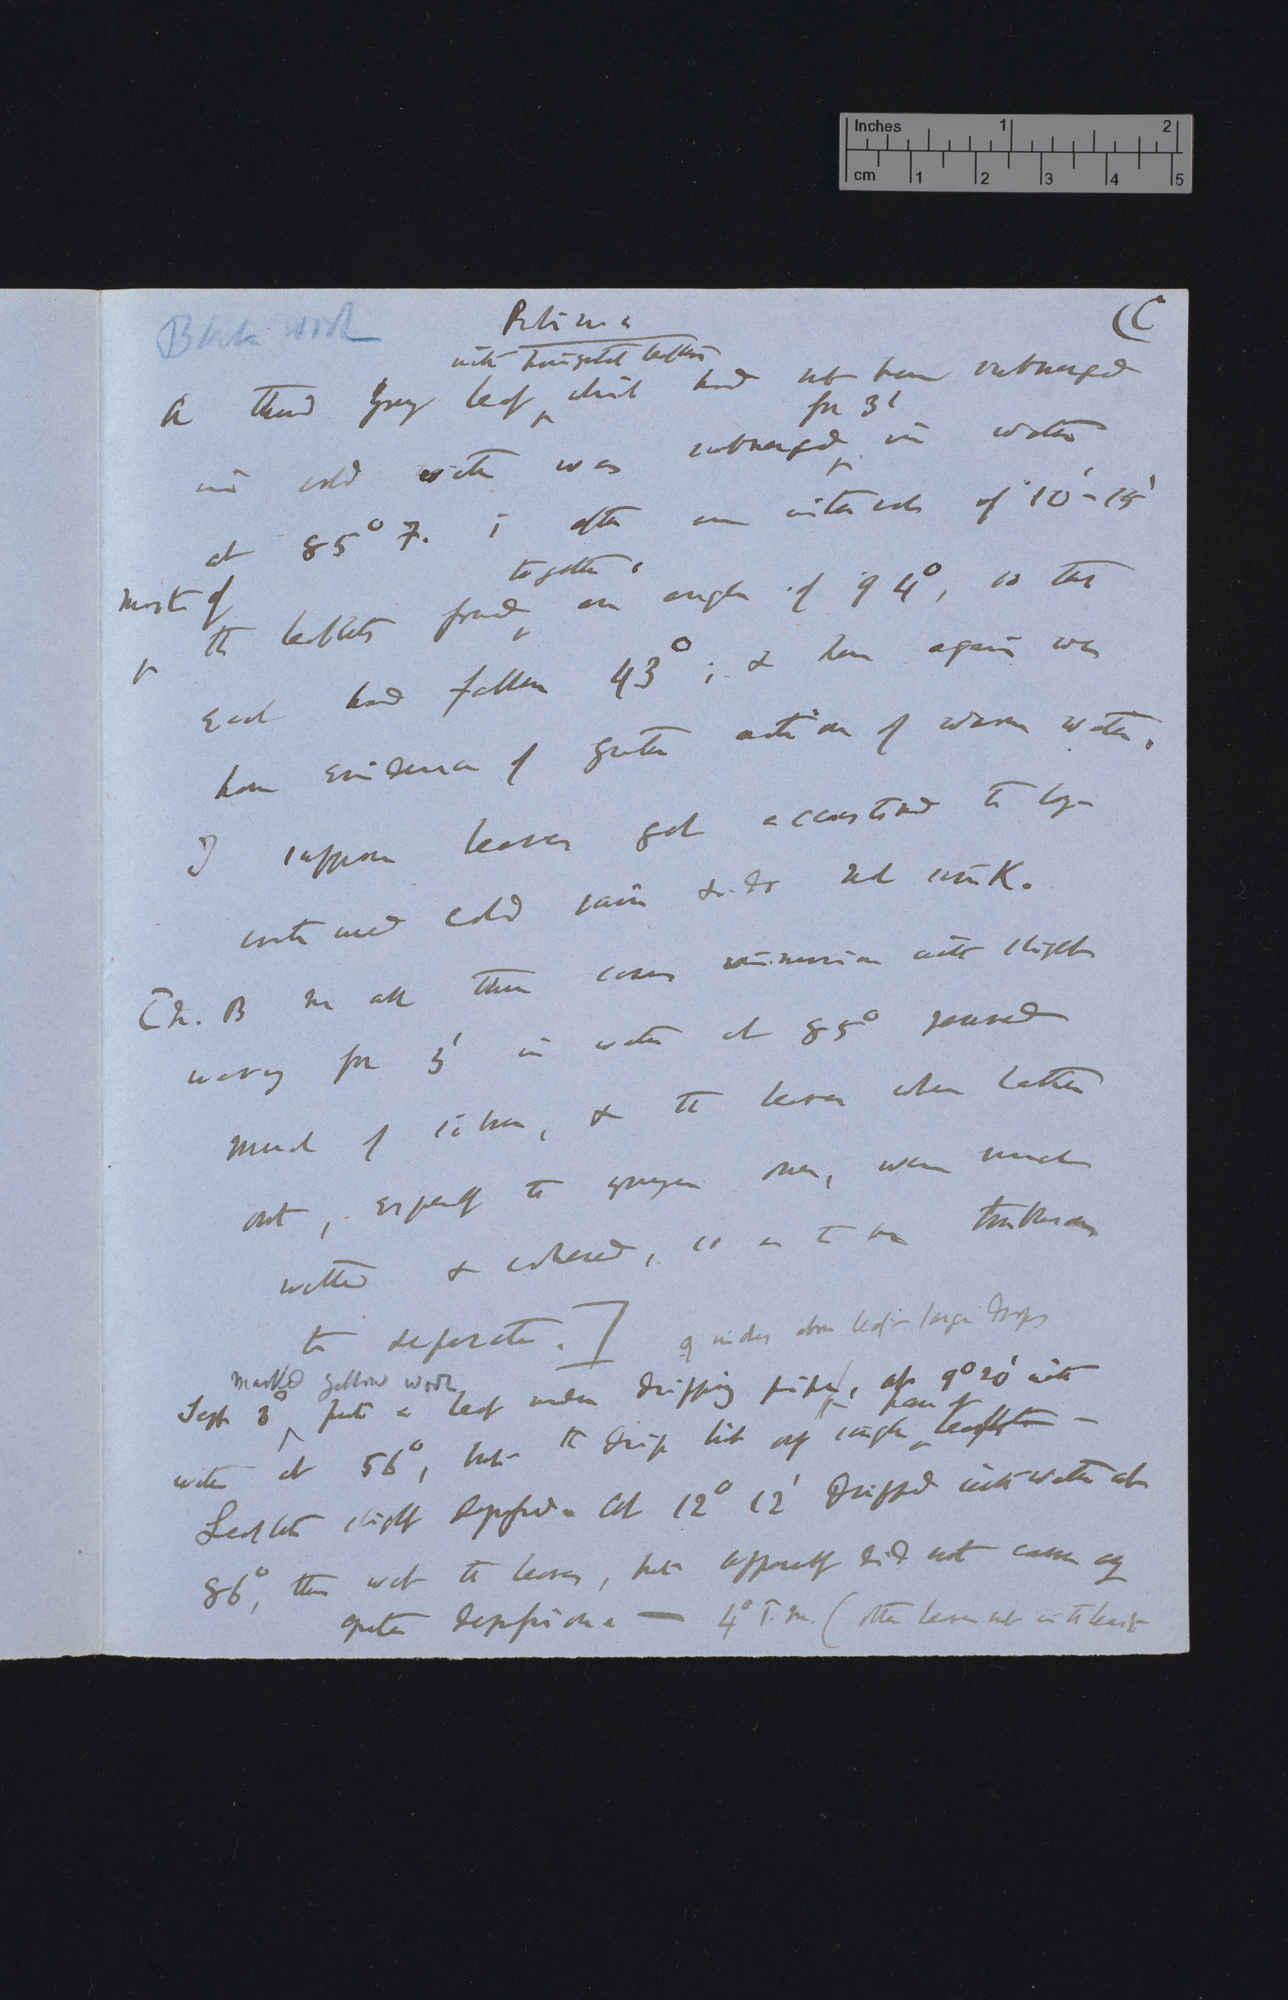 Inches 1 2
cm 1 2 3 4 5
Black wool
(C
with horizontal leaflets
A third young leaf, which had not been submerged
for 3'
in cold water was submerged in water
at 85° F. & after an interval of 10'-15'
together
most of
the leaflets formed an angle of 94°, so that
each had fallen 43°; & here again we
have evidence of greater action of warm water.
I suppose leaves get accustomed to long
continued cold rain & do not sink.
Ch. B In all these cases immersion with slight
waving for 3' in water at 85° removed
much of bloom, & the leaves when taken
out, especially the younger ones, were much
wetted & adhered, so as to be troublesome
to separate.]
9 inches above leaf large drops
marked yellow wool
Sept 3° put a leaf under dripping pipe, at 9° 20' with
part of
water at 56°, but the drip hit only single leaflet —
Leaflets slightly depressed. At 12° 12' dripped with water at
86°, this wet the leaves, but apparently did not cause any
greater depression — 4° P.m. (other leaves not in the least